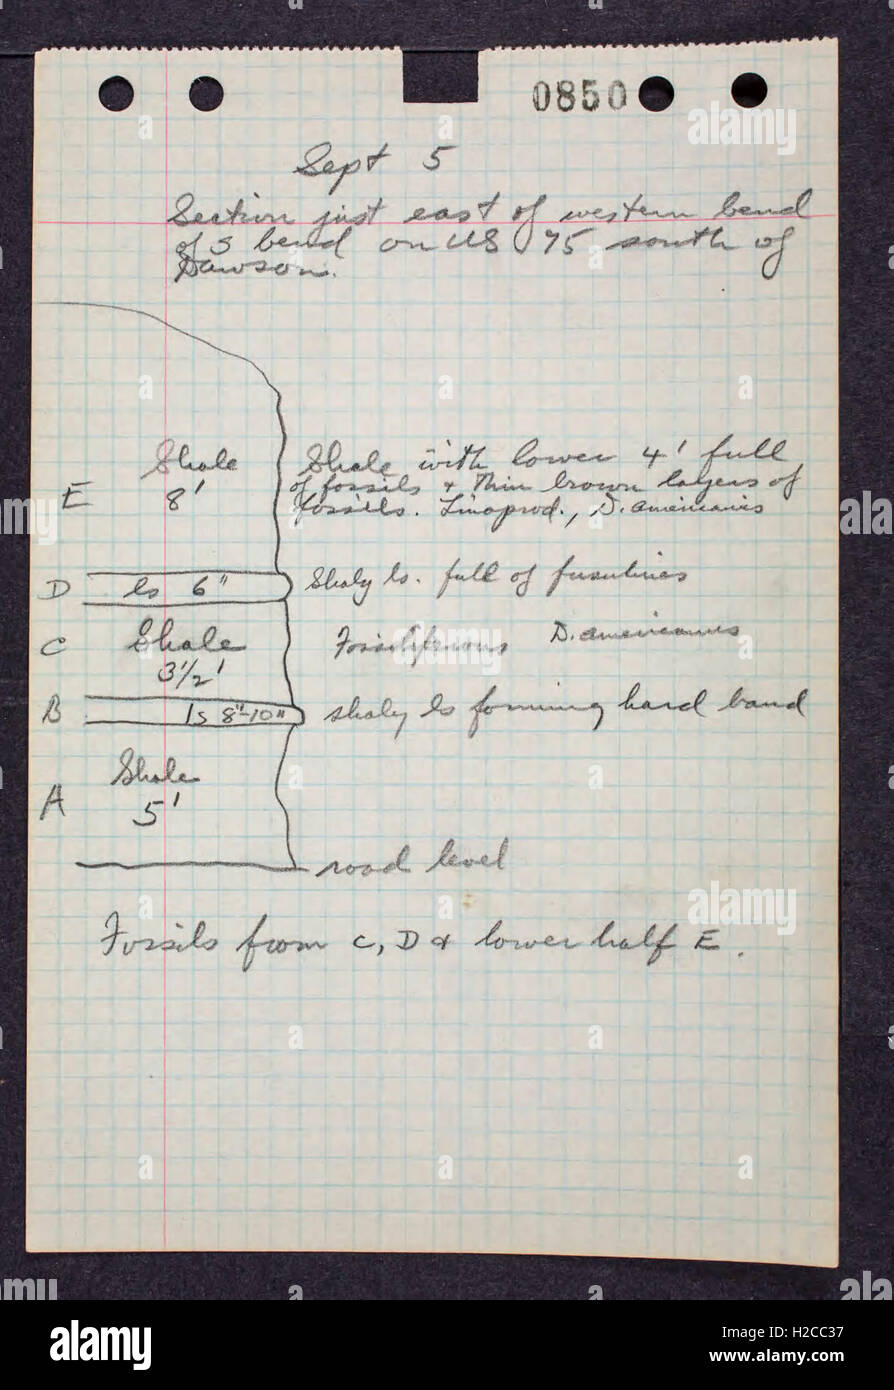 0850
Sept 5
Section just east of western bend
of S bend on US 75 south of
Dawson.
Shale
8'
E
Shale with lower 4' full
of fossils & thin brown layers of
fossils. Linoprod., D. americanus
D
ls 6"
Shaly ls. full of fusulines
C
Shale
3 1/2'
Fossiliferous D. americanus
B
ls 8"-10"
shaly ls forming hard band
A
Shale
5'
road level
Fossils from C, D & lower half E.
alamy
alamy
Image ID: H2CC37
www.alamy.com